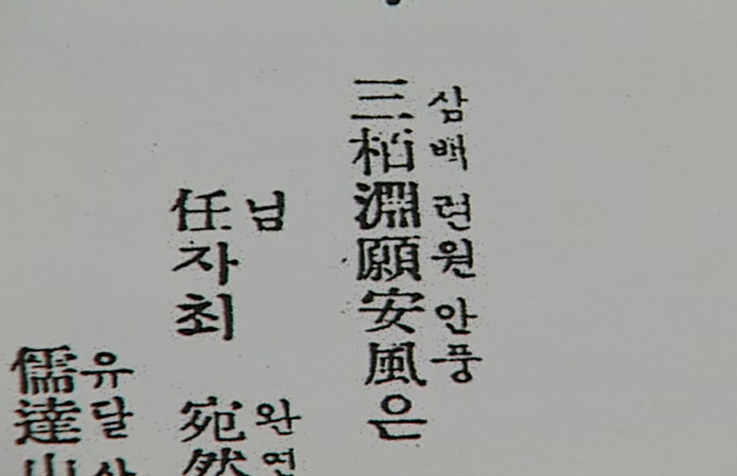 삼백련원안풍
三栢淵願安風은
님 완연
任자최 宛然
유달산
儒達山